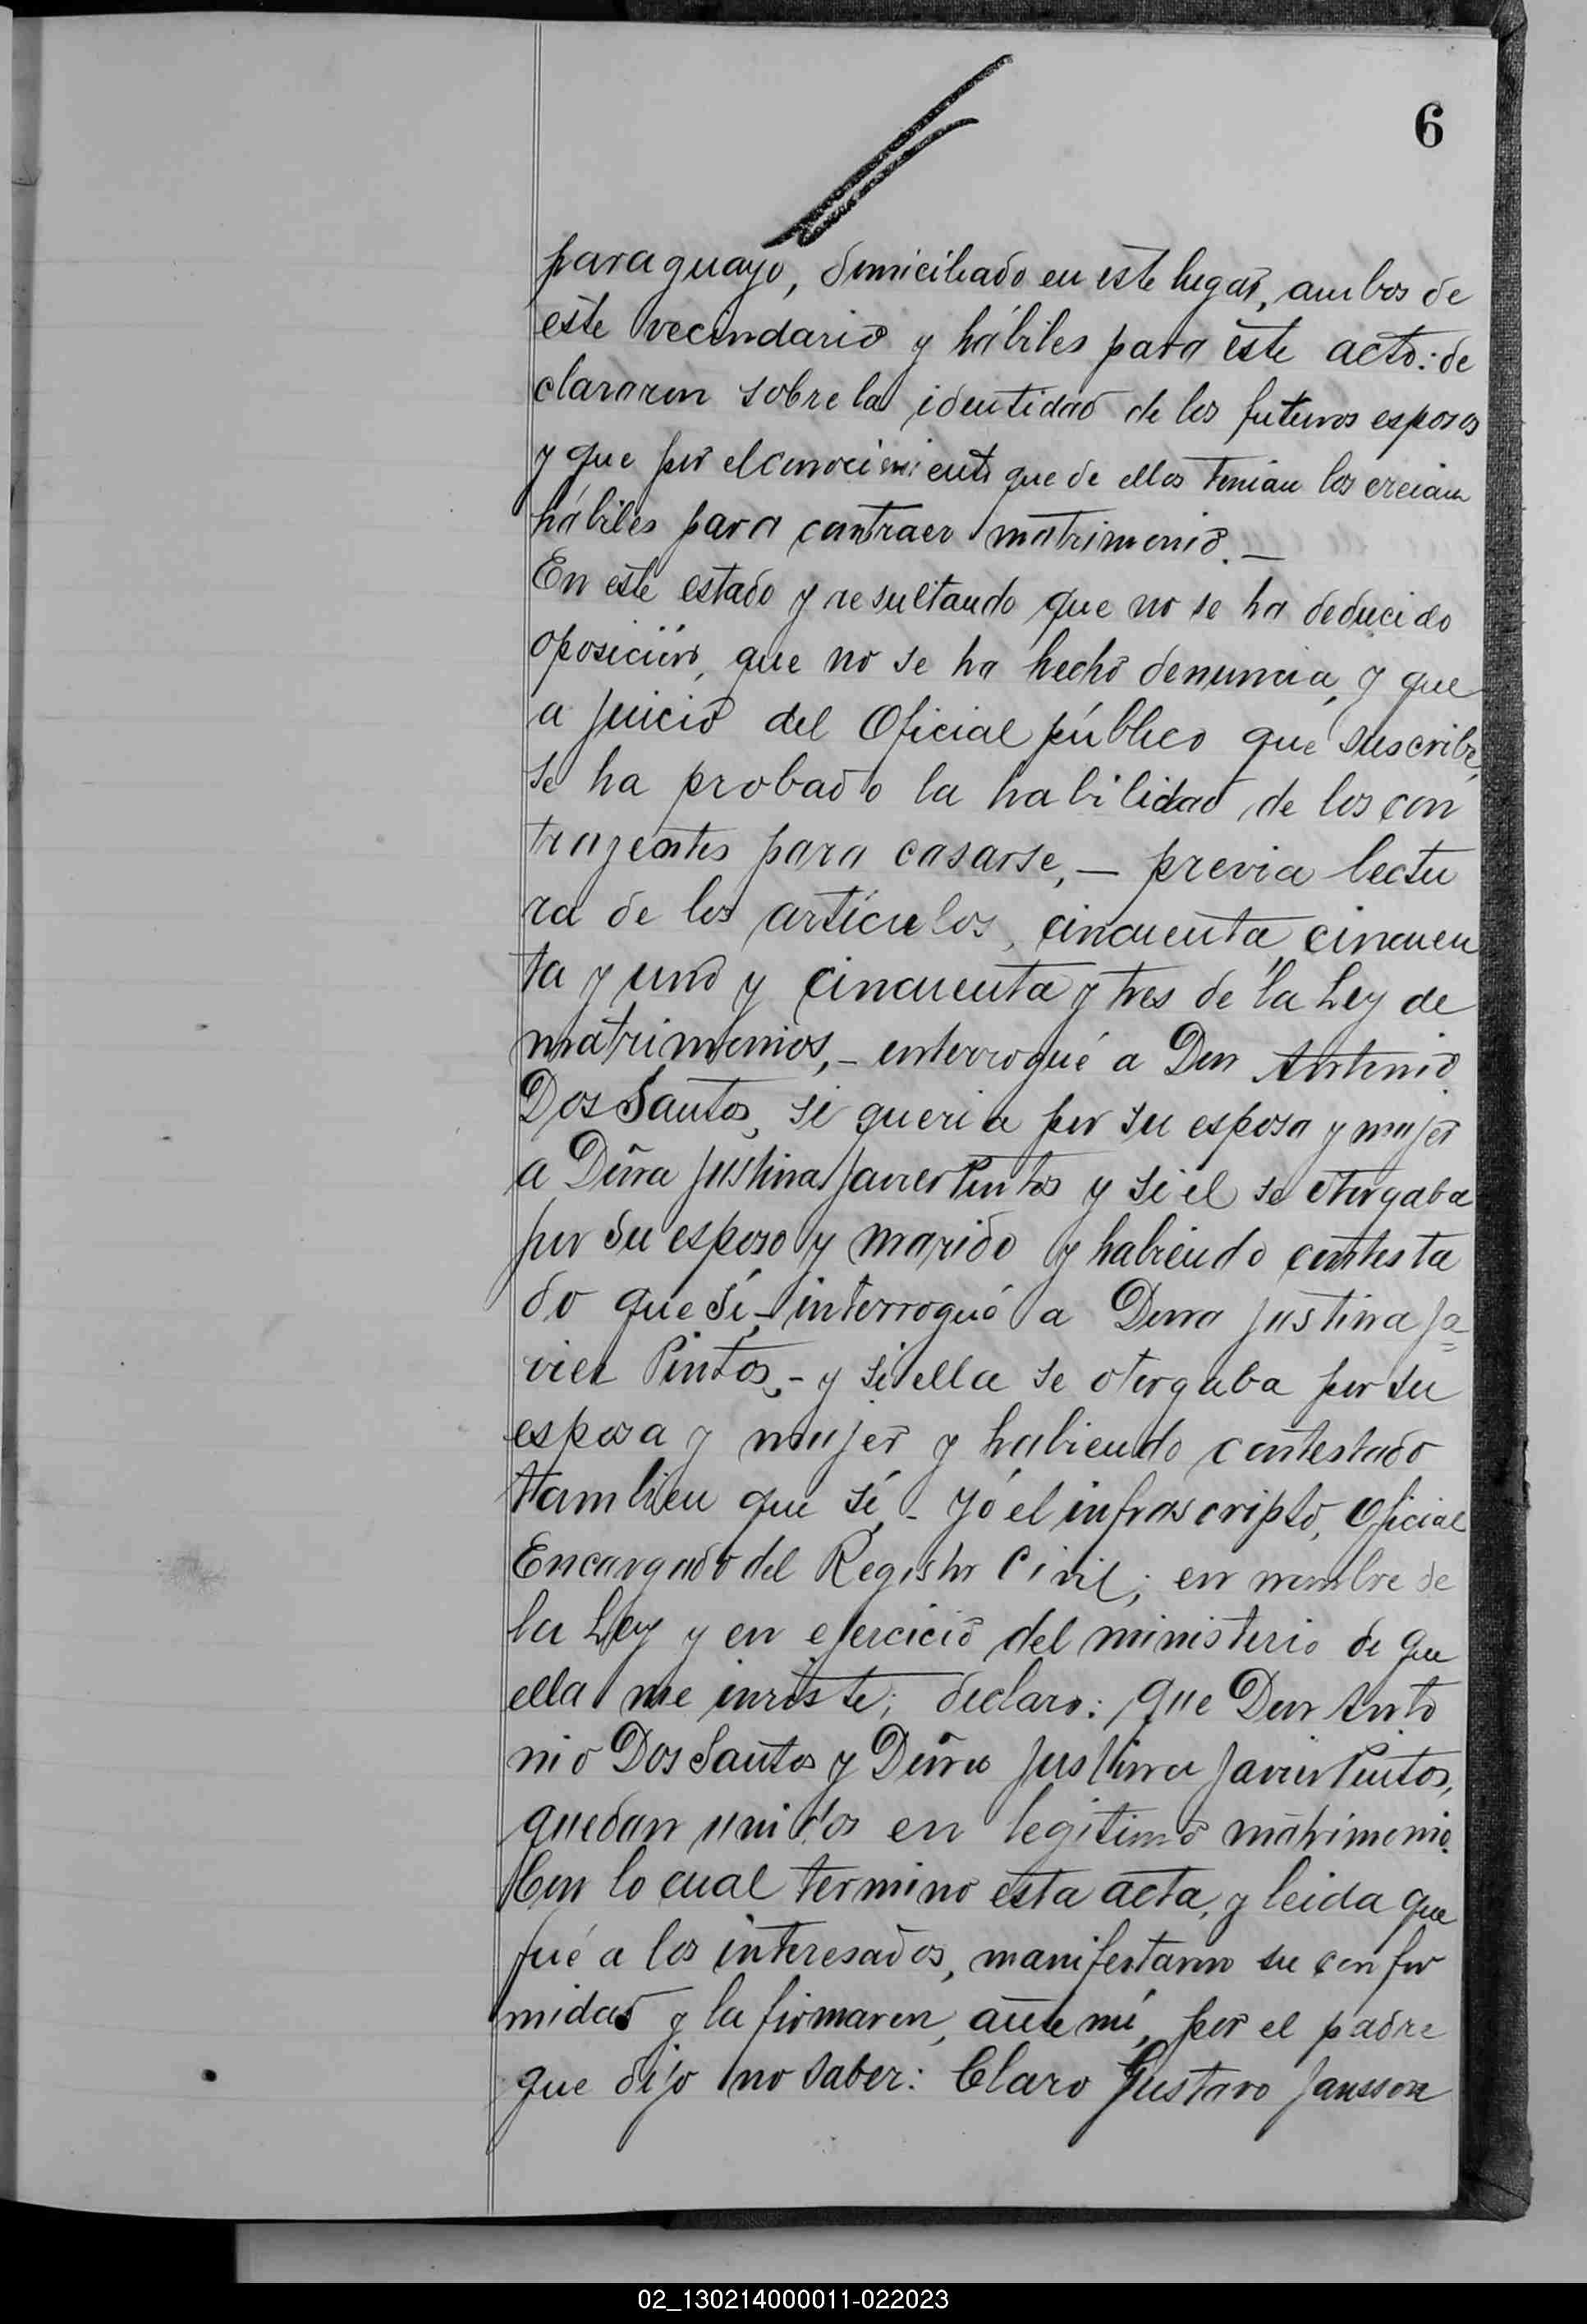 6
paraguayo, domiciliado en este lugar, ambos de
este vecindario y hábiles para este acto: de
claroron sobre la identidad de los futuros esposos
y que por el conocimiento que de ellos tenian los creian
hábiles para contraer matrimonio. —
En este estado y resultando que no se ha deducido
oposición, que no se ha hecho denuncia, y que
a juicio del Oficial público que suscribe,
se ha probado la habilidad de los con
trayentes para casarse, — previa lectu
ra de los artículos, cincuenta, cincuen
ta y uno y cincuenta y tres de la Ley de
matrimonios, - interrogué a Don Antonio
Dos Santos, si queria por su esposa y mujer
a Doña Justina Javier Pintos y si él se otorgaba
por su esposo y marido y habiendo contesta
do que sí, - interrogué a Doña Justina Ja=
vier Pintos, - y si ella se otorgaba por su
esposa y mujer y habiendo contestado
tambien que sí, - Yó el infrascripto, Oficial
Encargado del Registro Civil; en nombre de
la Ley y en ejercicio del ministerio de que
ella me inviste; declaro: que Don Anto
nio Dos Santos y Doña Justina Javier Pintos,
quedan unidos en legítimo matrimonio.
Con lo cual termino esta acta, y leida que
fué a los interesados, manifestaron su confor
midad y la firmaron, ante mí, por el padre
que dijo no saber: Claro Gustavo Jansson
02_130214000011-022023